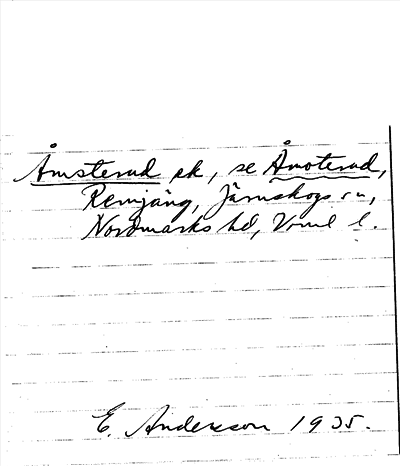 Åmsterud pk, se Åmoterud,
Remjäng, Järnskogs sn,
Nordmarks hd, Vrml l.
E. Andersson 1935.